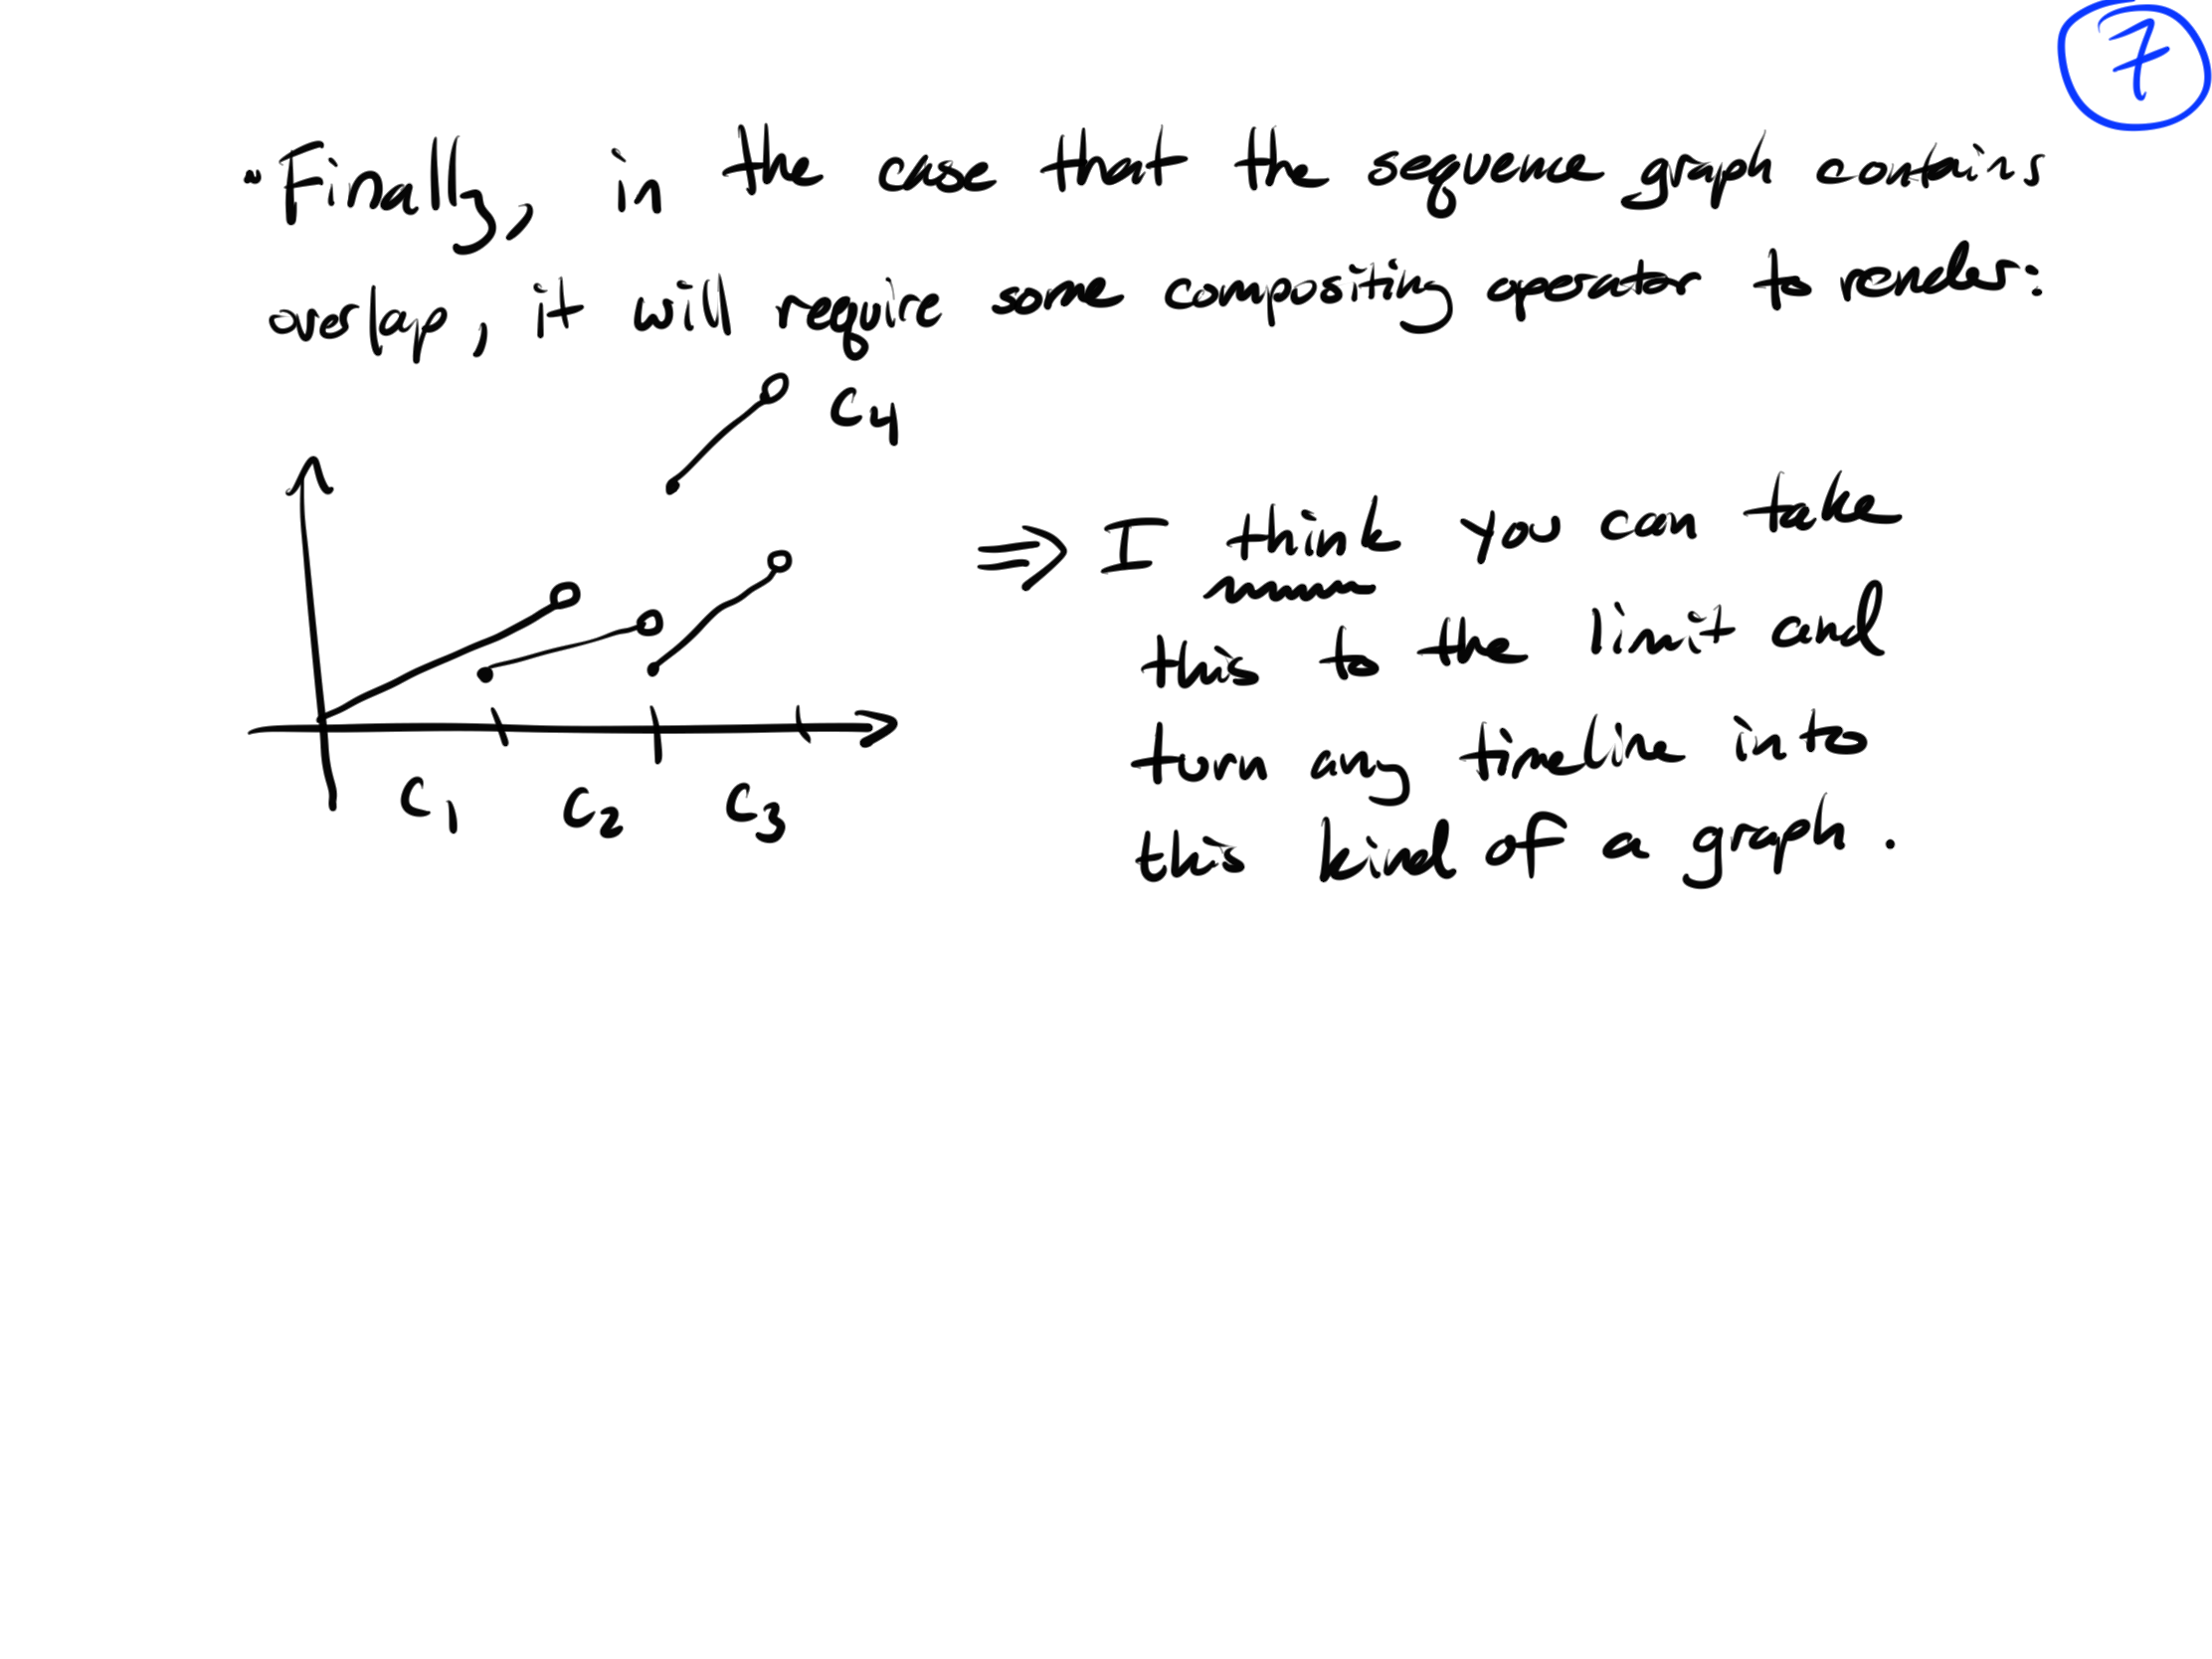 7
"Finally, in the case that the sequence graph contains
overlap, it will require some compositing operator to render:
C4
⇒ I think you can take
this to the limit and
turn any timeline into
this kind of a graph.
C1 C2 C3